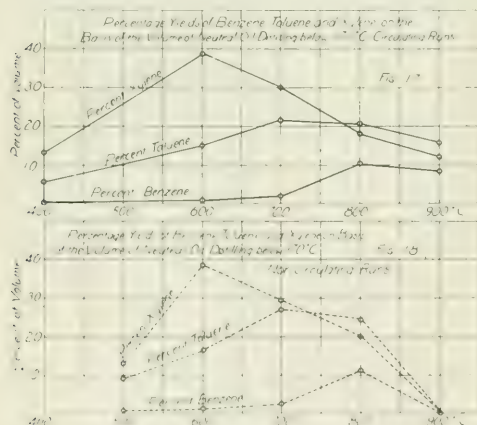 Percentage Yields of Benzene Toluene and Xylene on the
Basis of the Volume of Neutral Oil Distilling below °C Circulating Runs
Fig.
Percent of Volume
40
30
20
10
Percent Xylene
Percent Toluene
Percent Benzene
400 500 600 700 800 900°C
Percentage Yields of Toluene Xylene on Basis
of the Volume of Neutral Oil Distilling below °C Fig.
Non Circulating Runs
Percent of Volume
40
30
20
Xylene
Percent Toluene
Percent Benzene
400 600 900°C